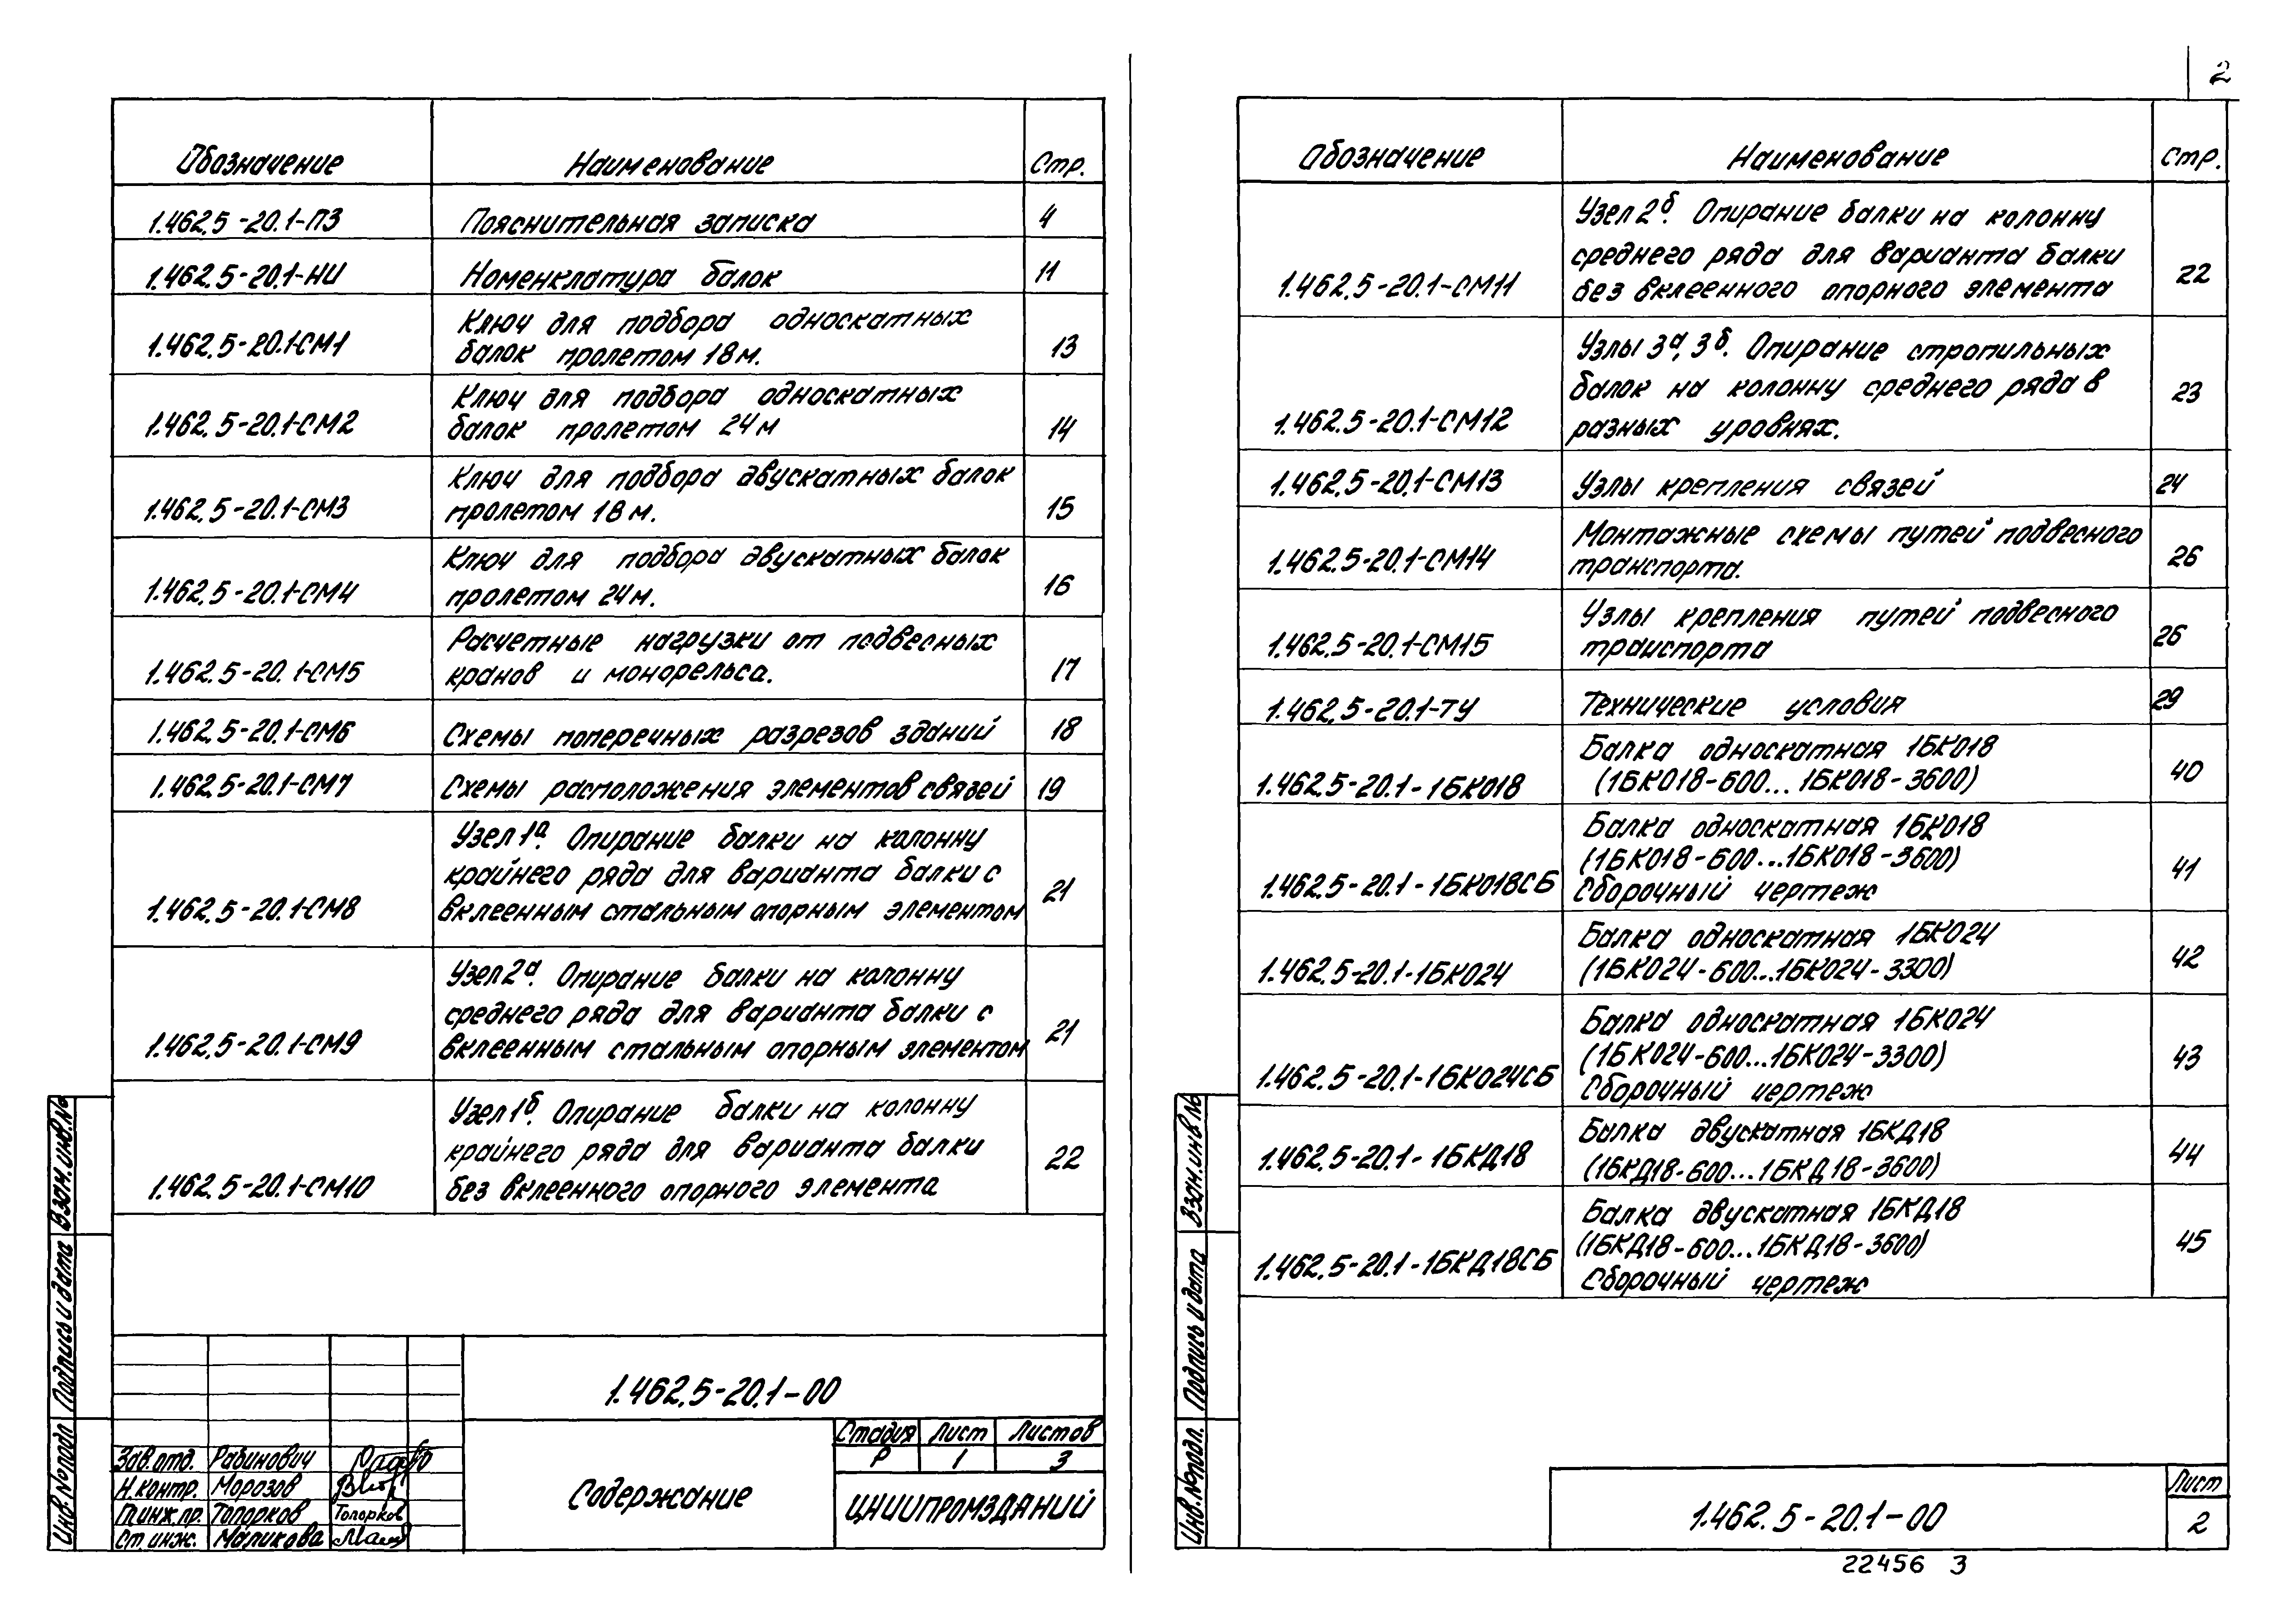 2
Обозначение Наименование Стр.
1.462.5-20.1-ПЗ Пояснительная записка 4
1.462.5-20.1-НИ Номенклатура балок 11
1.462.5-20.1-СМ1 Ключ для подбора односкатных
балок пролетом 18м. 13
1.462.5-20.1-СМ2 Ключ для подбора односкатных
балок пролетом 24м 14
1.462.5-20.1-СМ3 Ключ для подбора двускатных балок
пролетом 18м. 15
1.462.5-20.1-СМ4 Ключ для подбора двускатных балок
пролетом 24м. 16
1.462.5-20.1-СМ5 Расчетные нагрузки от подвесных
кранов и монорельса. 17
1.462.5-20.1-СМ6 Схемы поперечных разрезов зданий 18
1.462.5-20.1-СМ7 Схемы расположения элементов связей 19
1.462.5-20.1-СМ8 Узел 1а. Опирание балки на колонну
крайнего ряда для варианта балки с
вклеенным стальным опорным элементом 21
1.462.5-20.1-СМ9 Узел 2а. Опирание балки на колонну
среднего ряда для варианта балки с
вклеенным стальным опорным элементом 21
1.462.5-20.1-СМ10 Узел 1б. Опирание балки на колонну
крайнего ряда для варианта балки
без вклеенного опорного элемента 22
1.462.5-20.1-00
Стадия Лист Листов
Р 1 3
Содержание
ЦНИИПРОМЗДАНИЙ
Зав.отд. Рабинович
Н.контр. Морозов
Гл.инж.пр. Топорков Топорков
Ст.инж. Маликова
Взам.инв.№
Подпись и дата
Инв.№подл
Обозначение Наименование Стр.
1.462.5-20.1-СМ11 Узел 2б. Опирание балки на колонну
среднего ряда для варианта балки
без вклеенного опорного элемента 22
1.462.5-20.1-СМ12 Узлы 3а, 3б. Опирание стропильных
балок на колонну среднего ряда в
разных уровнях. 23
1.462.5-20.1-СМ13 Узлы крепления связей 24
1.462.5-20.1-СМ14 Монтажные схемы путей подвесного
транспорта. 26
1.462.5-20.1-СМ15 Узлы крепления путей подвесного
транспорта 26
1.462.5-20.1-ТУ Технические условия 29
1.462.5-20.1-1БКО18 Балка односкатная 1БКО18
(1БКО18-600...1БКО18-3600) 40
1.462.5-20.1-1БКО18СБ Балка односкатная 1БКО18
(1БКО18-600...1БКО18-3600)
Сборочный чертеж 41
1.462.5-20.1-1БКО24 Балка односкатная 1БКО24
(1БКО24-600...1БКО24-3300) 42
1.462.5-20.1-1БКО24СБ Балка односкатная 1БКО24
(1БКО24-600...1БКО24-3300)
Сборочный чертеж 43
1.462.5-20.1-1БКД18 Балка двускатная 1БКД18
(1БКД18-600...1БКД18-3600) 44
1.462.5-20.1-1БКД18СБ Балка двускатная 1БКД18
(1БКД18-600...1БКД18-3600)
Сборочный чертеж 45
Взам.инв.№
Подпись и дата
Инв.№подл.
1.462.5-20.1-00
Лист
2
22456 3